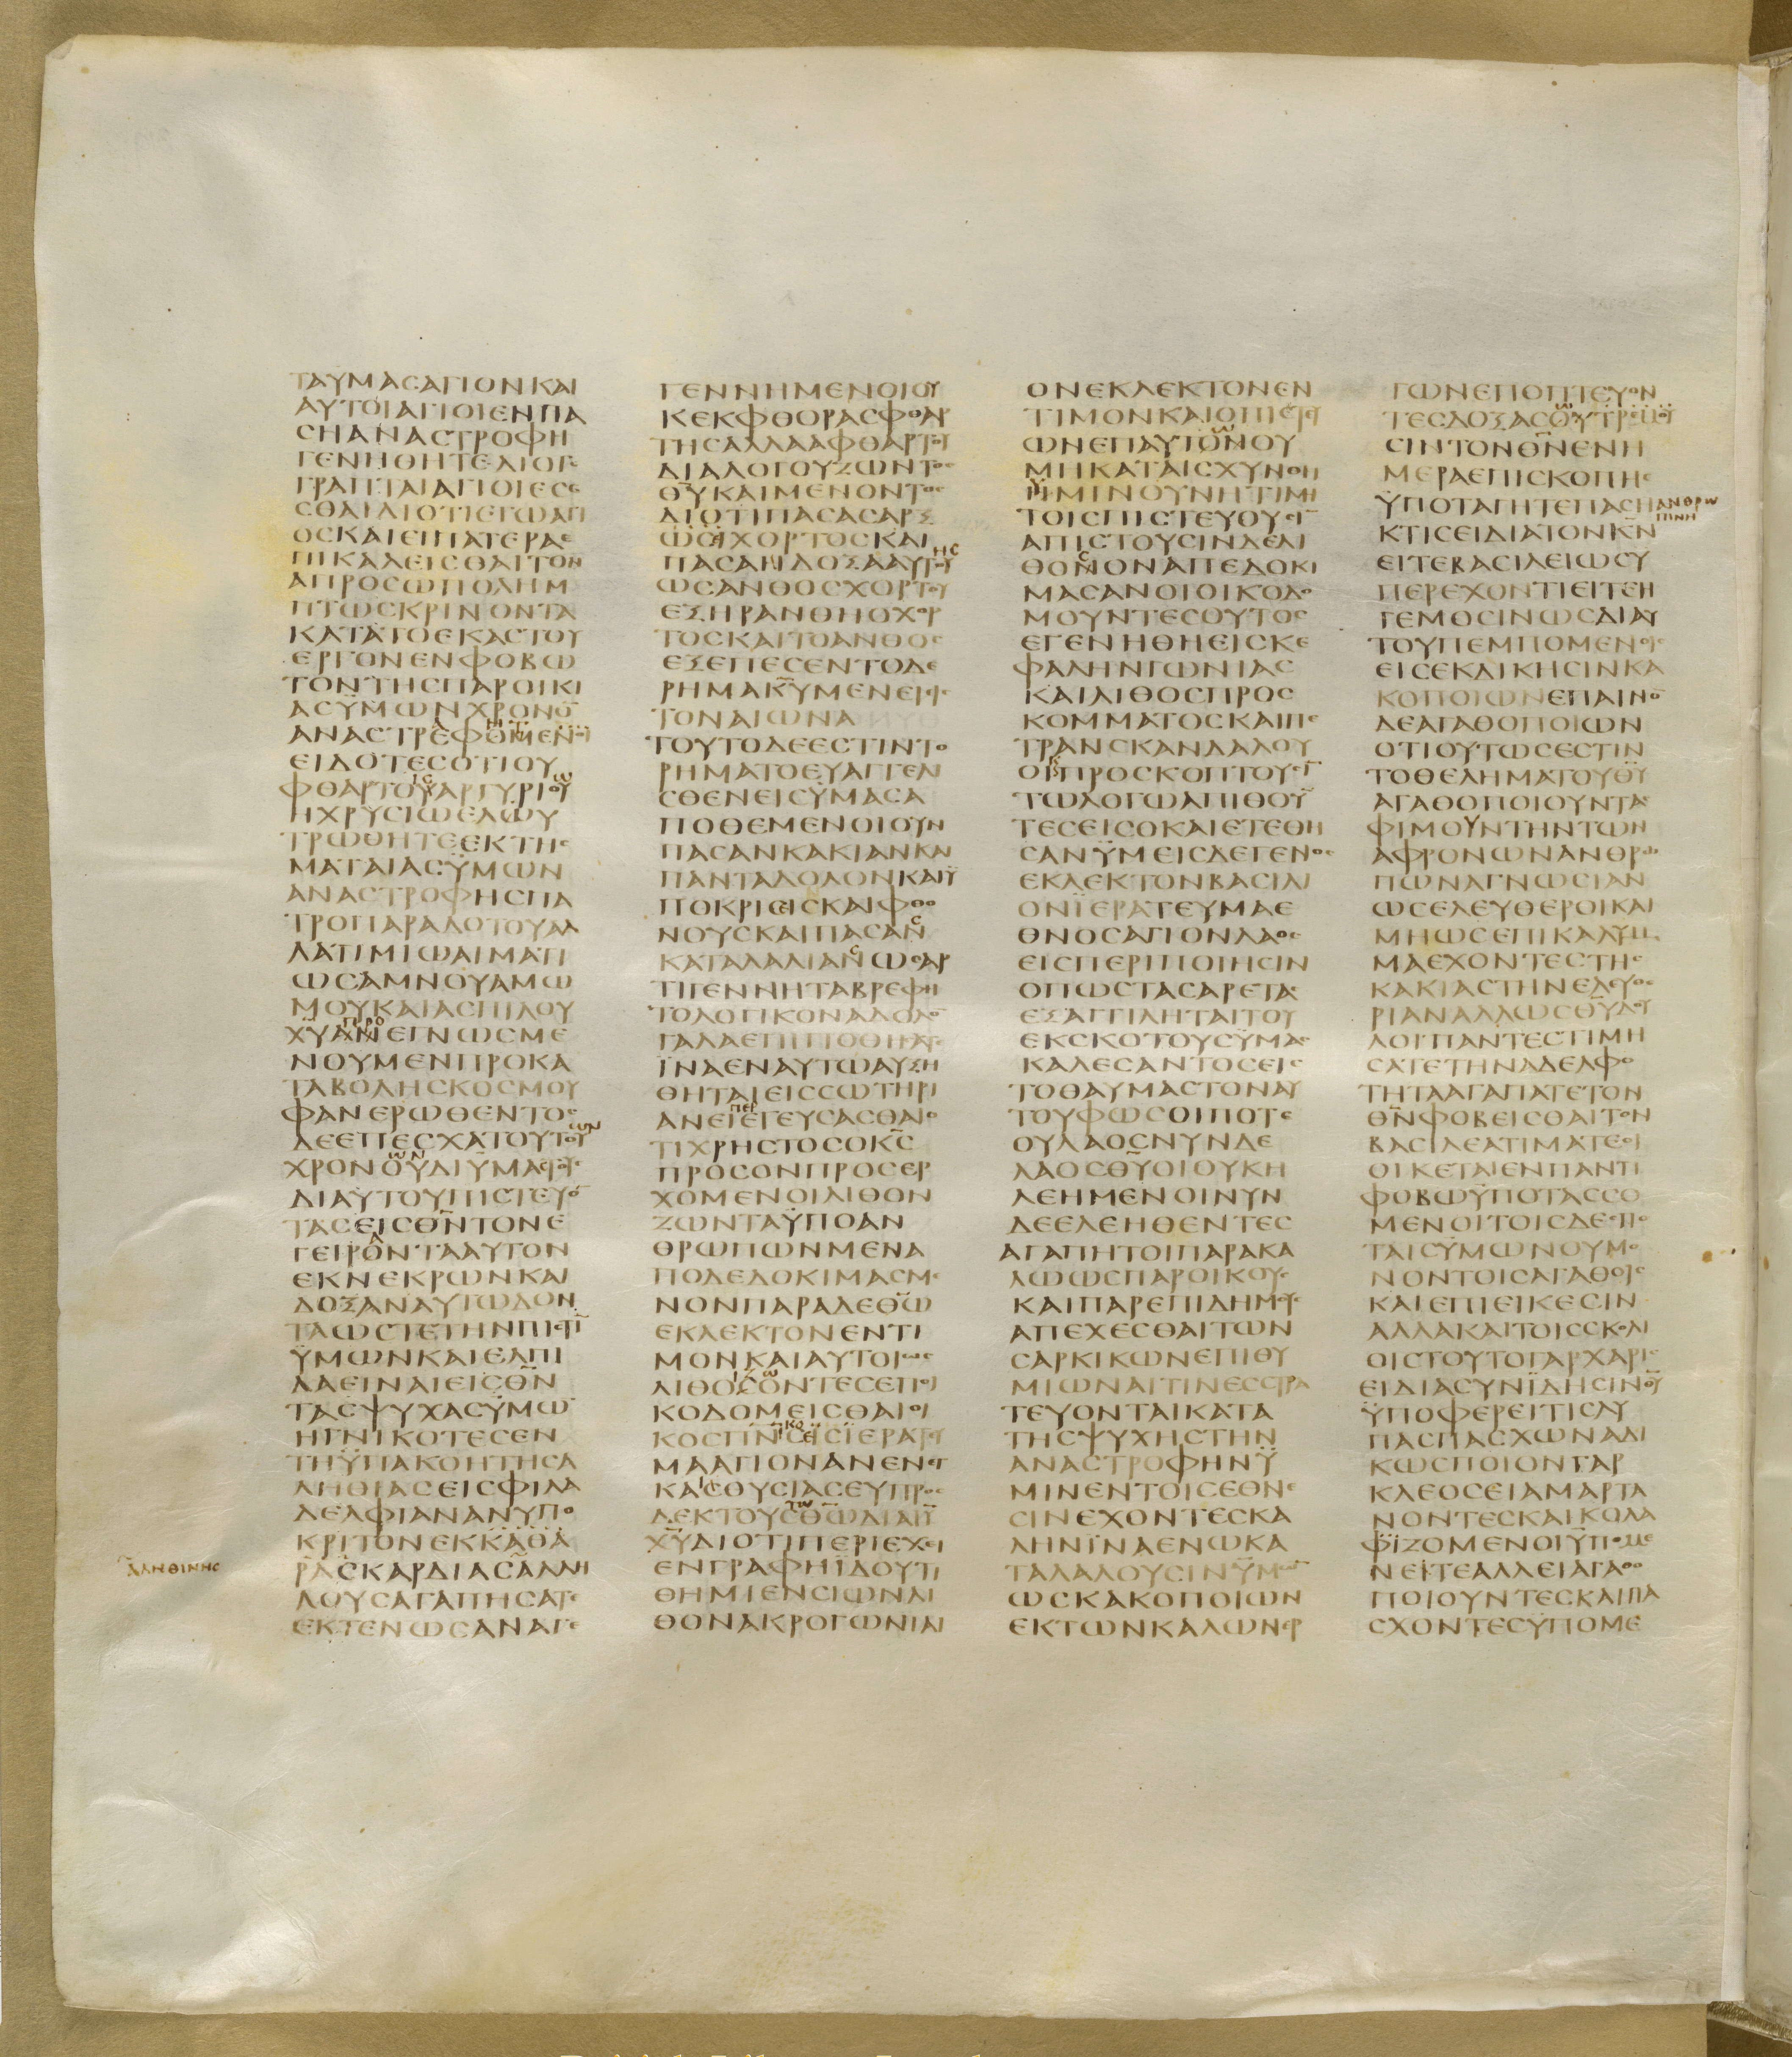 ΤΑΥΜΑϹΑΓΙΟΝΚΑΙ
ΑΥΤΟΙΑΓΙΟΙΕΝΠΑ
ϹΗΑΝΑϹΤΡΟΦΗ
ΓΕΝΗΘΗΤΕΔΙΟΓΕ
ΓΡΑΠΤΑΙΑΓΙΟΙΕϹΕ
ϹΘΑΙΔΙΟΤΙΕΓΩΑΓΙ
ΟϹΚΑΙΕΙΠΑΤΕΡΑΕ
ΠΙΚΑΛΕΙϹΘΑΙΤΟΝ
ΑΠΡΟϹΩΠΟΛΗΜ
ΠΤΩϹΚΡΙΝΟΝΤΑ
ΚΑΤΑΤΟΕΚΑϹΤΟΥ
ΕΡΓΟΝΕΝΦΟΒΩ
ΤΟΝΤΗϹΠΑΡΟΙΚΙ
ΑϹΫΜΩΝΧΡΟΝΟ̅
ΑΝΑϹΤΡΕΦΟΜΕΝΟΙ
ΕΙΔΟΤΕϹΟΤΙΟΥ
ΦΘΑΡΤΟΥΑΡΓΥΡΙΟΥ
ΗΧΡΥϹΙΩΕΛΥ
ΤΡΩΘΗΤΕΕΚΤΗϹ
ΜΑΤΑΙΑϹΫΜΩΝ
ΑΝΑϹΤΡΟΦΗϹΠΑ
ΤΡΟΠΑΡΑΔΟΤΟΥΑΛ
ΛΑΤΙΜΙΩΑΙΜΑΤΙ
ΩϹΑΜΝΟΥΑΜΩ
ΜΟΥΚΑΙΑϹΠΙΛΟΥ
Χ̅Υ̅ΑΝΕΓΝΩϹΜΕ
ΝΟΥΜΕΝΠΡΟΚΑ
ΤΑΒΟΛΗϹΚΟϹΜΟΥ
ΦΑΝΕΡΩΘΕΝΤΟϹ
ΔΕΕΠΕϹΧΑΤΟΥΤΟΥ
ΧΡΟΝΟΥΔΙΫΜΑϹΤΟΥϹ
ΔΙΑΥΤΟΥΠΙϹΤΕΥΟ̅
ΤΑϹΕΙϹΘ̅Ν̅ΤΟΝΕ
ΓΕΙΡΟΝΤΑΑΥΤΟΝ
ΕΚΝΕΚΡΩΝΚΑΙ
ΔΟΞΑΝΑΥΤΩΔΟΝ
ΤΑΩϹΤΕΤΗΝΠΙϹΤΙ̅
ΫΜΩΝΚΑΙΕΛΠΙ
ΔΑΕΙΝΑΙΕΙϹΘ̅Ν̅
ΤΑϹΨΥΧΑϹΫΜΩ̅
ΗΓΝΙΚΟΤΕϹΕΝ
ΤΗΫΠΑΚΟΗΤΗϹΑ
ΛΗΘΙΑϹΕΙϹΦΙΛΑ
ΔΕΛΦΙΑΝΑΝΥΠΟ
ΚΡΙΤΟΝΕΚΚΑΘΑ
ΑΛΗΘΙΝΗϹ
ΡΑϹΚΑΡΔΙΑϹΑΛΛΗ
ΛΟΥϹΑΓΑΠΗϹΑΤΕ
ΕΚΤΕΝΩϹΑΝΑΓΕ
ΓΕΝΝΗΜΕΝΟΙΟΥ
ΚΕΚΦΘΟΡΑϹΦΘΑΡ
ΤΗϹΑΛΛΑΑΦΘΑΡΤΟΥ
ΔΙΑΛΟΓΟΥΖΩΝΤΟϹ
Θ̅Υ̅ΚΑΙΜΕΝΟΝΤΟϹ
ΔΙΟΤΙΠΑϹΑϹΑΡΞ
ΩϹΙΧΟΡΤΟϹΚΑΙ
ΠΑϹΑΗΔΟΞΑΑΥΤΟΥ
ΩϹΑΝΘΟϹΧΟΡΤΟΥ
ΕΞΗΡΑΝΘΗΟΧΟΡ
ΤΟϹΚΑΙΤΟΑΝΘΟϹ
ΕΞΕΠΕϹΕΝΤΟΔΕ
ΡΗΜΑΚ̅Υ̅ΜΕΝΕΙΕΙϹ
ΤΟΝΑΙΩΝΑ
ΤΟΥΤΟΔΕΕϹΤΙΝΤΟ
ΡΗΜΑΤΟΕΥΑΓΓΕΛ
ϹΘΕΝΕΙϹΫΜΑϹΑ
ΠΟΘΕΜΕΝΟΙΟΥΝ
ΠΑϹΑΝΚΑΚΙΑΝΚΑΙ
ΠΑΝΤΑΔΟΛΟΝΚΑΙΫ
ΠΟΚΡΙϹΙϹΚΑΙΦΘΟ
ΝΟΥϹΚΑΙΠΑϹΑΝ
ΚΑΤΑΛΑΛΙΑΝΩϹΑΡ
ΤΙΓΕΝΝΗΤΑΒΡΕΦΗ
ΤΟΛΟΓΙΚΟΝΑΔΟΛΟ̅
ΓΑΛΑΕΠΙΠΟΘΗϹΑΤΕ
ΪΝΑΕΝΑΥΤΩΑΥΞΗ
ΘΗΤΑΙΕΙϹϹΩΤΗΡΙ
ΑΝΕΙΕΓΕΥϹΑϹΘΑΙΟ
ΤΙΧΡΗϹΤΟϹΟΚ̅Ϲ̅
ΠΡΟϹΟΝΠΡΟϹΕΡ
ΧΟΜΕΝΟΙΛΙΘΟΝ
ΖΩΝΤΑΫΠΟΑΝ
ΘΡΩΠΩΝΜΕΝΑ
ΠΟΔΕΔΟΚΙΜΑϹΜΕ
ΝΟΝΠΑΡΑΔΕΘ̅Ω̅
ΕΚΛΕΚΤΟΝΕΝΤΙ
ΜΟΝΚΑΙΑΥΤΟΙΩϹ
ΛΙΘΟΙΖΩΝΤΕϹΕΠΟΙ
ΚΟΔΟΜΕΙϹΘΑΙΟΙ
ΚΟϹΠ̅Ν̅ϹΕΙϹΪΕΡΑΤΕΥ
ΜΑΑΓΙΟΝΑΝΕΝΕΓΚ
ΚΑΙϹΘΥϹΙΑϹΕΥΠΡΟϹ
ΔΕΚΤΟΥϹΘ̅Ω̅ΔΙΑΙ̅Υ̅
Χ̅Υ̅ΔΙΟΤΙΠΕΡΙΕΧΕΙ
ΕΝΓΡΑΦΗΪΔΟΥΤΙ
ΘΗΜΙΕΝϹΙΩΝΛΙ
ΘΟΝΑΚΡΟΓΩΝΙΑΙ
ΟΝΕΚΛΕΚΤΟΝΕΝ
ΤΙΜΟΝΚΑΙΟΠΙϹΤΕΥ
ΩΝΕΠΑΥΤΟΝΟΥ
ΜΗΚΑΤΑΙϹΧΥΝΘΗ
ΫΜΙΝΟΥΝΗΤΙΜΗ
ΤΟΙϹΠΙϹΤΕΥΟΥϹΙ̅
ΑΠΙϹΤΟΥϹΙΝΔΕΛΙ
ΘΟΝΟΝΑΠΕΔΟΚΙ
ΜΑϹΑΝΟΙΟΙΚΟΔΟ
ΜΟΥΝΤΕϹΟΥΤΟϹ
ΕΓΕΝΗΘΗΕΙϹΚΕ
ΦΑΛΗΝΓΩΝΙΑϹ
ΚΑΙΛΙΘΟϹΠΡΟϹ
ΚΟΜΜΑΤΟϹΚΑΙΠΕ
ΤΡΑΝϹΚΑΝΔΑΛΟΥ
ΟΙΠΡΟϹΚΟΠΤΟΥϹΙ̅
ΤΩΛΟΓΩΑΠΙΘΟΥ̅
ΤΕϹΕΙϹΟΚΑΙΕΤΕΘΗ
ϹΑΝΫΜΕΙϹΔΕΓΕΝΟϹ
ΕΚΛΕΚΤΟΝΒΑϹΙΛΙ
ΟΝΪΕΡΑΤΕΥΜΑΕ
ΘΝΟϹΑΓΙΟΝΛΑΟϹ
ΕΙϹΠΕΡΙΠΟΙΗϹΙΝ
ΟΠΩϹΤΑϹΑΡΕΤΑϹ
ΕΞΑΓΓΙΛΗΤΑΙΤΟΥ
ΕΚϹΚΟΤΟΥϹΫΜΑϹ
ΚΑΛΕϹΑΝΤΟϹΕΙϹ
ΤΟΘΑΥΜΑϹΤΟΝΑΥ
ΤΟΥΦΩϹΟΙΠΟΤΕ
ΟΥΛΑΟϹΝΥΝΔΕ
ΛΑΟϹΘ̅Υ̅ΟΙΟΥΚΗ
ΛΕΗΜΕΝΟΙΝΥΝ
ΔΕΕΛΕΗΘΕΝΤΕϹ
ΑΓΑΠΗΤΟΙΠΑΡΑΚΑ
ΛΩΩϹΠΑΡΟΙΚΟΥϹ
ΚΑΙΠΑΡΕΠΙΔΗΜΟΥϹ
ΑΠΕΧΕϹΘΑΙΤΩΝ
ϹΑΡΚΙΚΩΝΕΠΙΘΥ
ΜΙΩΝΑΙΤΙΝΕϹϹΤΡΑ
ΤΕΥΟΝΤΑΙΚΑΤΑ
ΤΗϹΨΥΧΗϹΤΗΝ
ΑΝΑϹΤΡΟΦΗΝΫ
ΜΙΝΕΝΤΟΙϹΕΘΝΕ
ϹΙΝΕΧΟΝΤΕϹΚΑ
ΛΗΝΪΝΑΕΝΩΚΑ
ΤΑΛΑΛΟΥϹΙΝΫΜΩ̅
ΩϹΚΑΚΟΠΟΙΩΝ
ΕΚΤΩΝΚΑΛΩΝΕΡ
ΓΩΝΕΠΟΠΤΕΥΟΝ
ΤΕϹΔΟΞΑϹ
ϹΙΝΤΟΝΘ̅Ν̅ΕΝΗ
ΜΕΡΑΕΠΙϹΚΟΠΗϹ
ΫΠΟΤΑΓΗΤΕΠΑϹΗ ΑΝΘΡΩ
ΠΙΝΗ
ΚΤΙϹΕΙΔΙΑΤΟΝΚ̅Ν̅
ΕΙΤΕΒΑϹΙΛΕΙΩϹΥ
ΠΕΡΕΧΟΝΤΙΕΙΤΕΗ
ΓΕΜΟϹΙΝΩϹΔΙΑΥ
ΤΟΥΠΕΜΠΟΜΕΝΟΙϹ
ΕΙϹΕΚΔΙΚΗϹΙΝΚΑ
ΚΟΠΟΙΩΝΕΠΑΙΝΟ̅
ΔΕΑΓΑΘΟΠΟΙΩΝ
ΟΤΙΟΥΤΩϹΕϹΤΙΝ
ΤΟΘΕΛΗΜΑΤΟΥΘ̅Υ̅
ΑΓΑΘΟΠΟΙΟΥΝΤΑϹ
ΦΙΜΟΥΝΤΗΝΤΩΝ
ΑΦΡΟΝΩΝΑΝΘΡΩ
ΠΩΝΑΓΝΩϹΙΑΝ
ΩϹΕΛΕΥΘΕΡΟΙΚΑΙ
ΜΗΩϹΕΠΙΚΑΛΥΜ
ΜΑΕΧΟΝΤΕϹΤΗϹ
ΚΑΚΙΑϹΤΗΝΕΛΕΥΘΕ
ΡΙΑΝΑΛΛΩϹΘ̅Υ̅ΔΟΥ
ΛΟΙΠΑΝΤΕϹΤΙΜΗ
ϹΑΤΕΤΗΝΑΔΕΛΦΟ
ΤΗΤΑΑΓΑΠΑΤΕΤΟΝ
Θ̅Ν̅ΦΟΒΕΙϹΘΑΙΤΟΝ
ΒΑϹΙΛΕΑΤΙΜΑΤΕΟΙ
ΟΙΚΕΤΑΙΕΝΠΑΝΤΙ
ΦΟΒΩΫΠΟΤΑϹϹΟ
ΜΕΝΟΙΤΟΙϹΔΕϹΠΟ
ΤΑΙϹΫΜΩΝΟΥΜΟ
ΝΟΝΤΟΙϹΑΓΑΘΟΙϹ
ΚΑΙΕΠΙΕΙΚΕϹΙΝ
ΑΛΛΑΚΑΙΤΟΙϹϹΚΟΛΙ
ΟΙϹΤΟΥΤΟΓΑΡΧΑΡΙϹ
ΕΙΔΙΑϹΥΝΪΔΗϹΙΝΘ̅Υ̅
ΫΠΟΦΕΡΕΙΤΙϹΛΥ
ΠΑϹΠΑϹΧΩΝΑΔΙ
ΚΩϹΠΟΙΟΝΓΑΡ
ΚΛΕΟϹΕΙΑΜΑΡΤΑ
ΝΟΝΤΕϹΚΑΙΚΟΛΑ
ΦΙΖΟΜΕΝΟΙΫΠΟΜΕ
ΝΕΙΤΕΑΛΛΕΙΑΓΑΘΟ
ΠΟΙΟΥΝΤΕϹΚΑΙΠΑ
ϹΧΟΝΤΕϹΫΠΟΜΕ